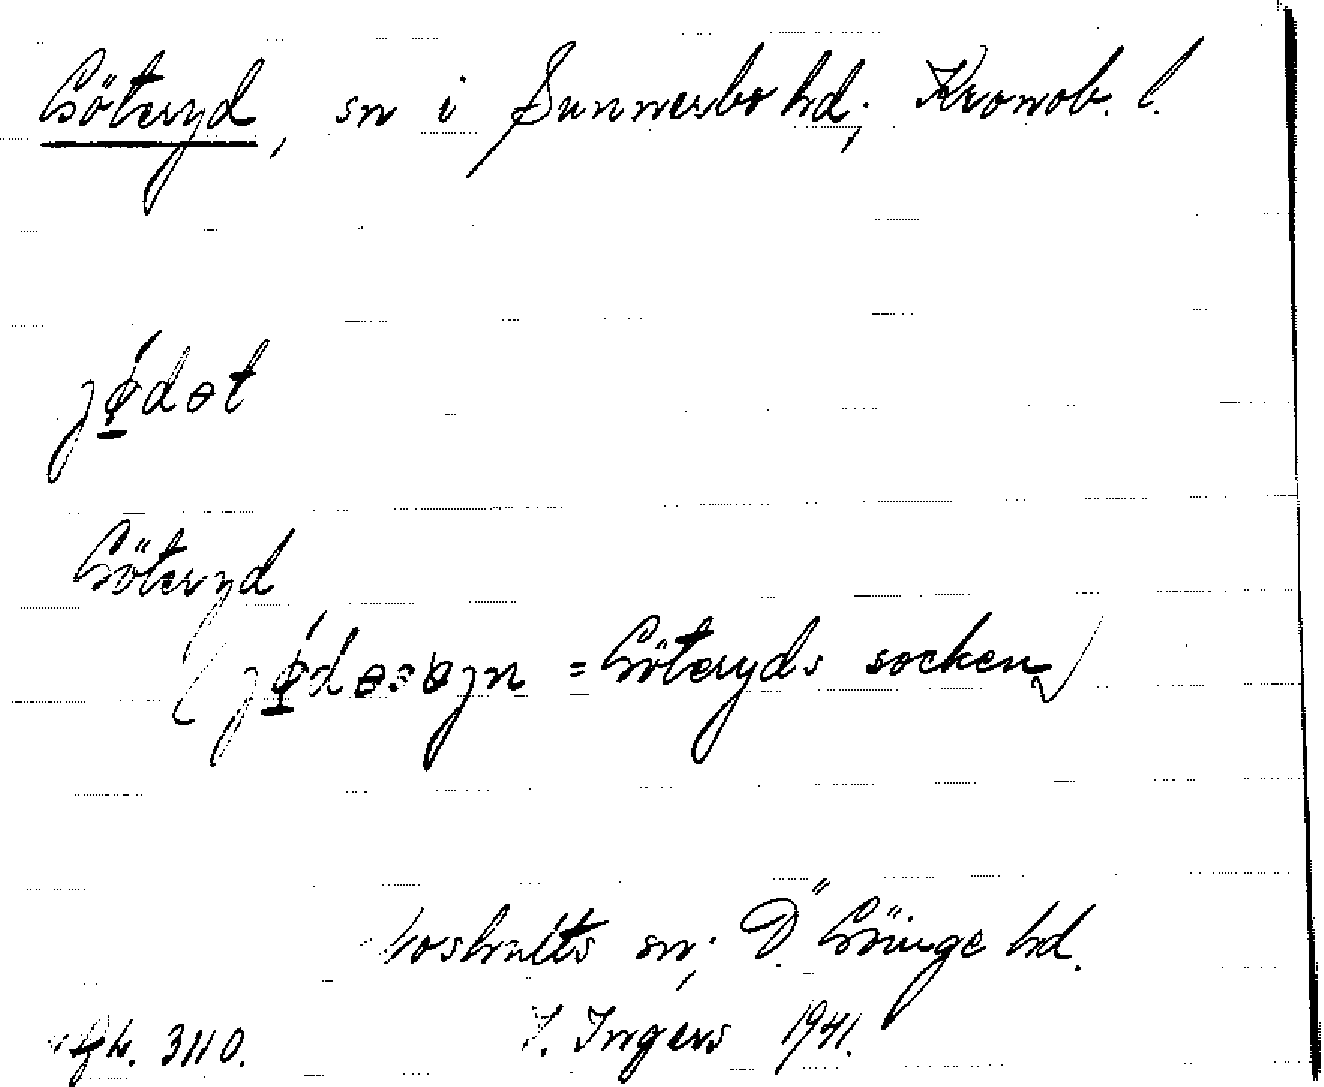 Göteryd, sn i Sunnerbo hd; Kronob. l.
jǿdət
Göteryd
(jǿdəsɵgn = Göteryds socken)
Loshults sn; Ö. Göinge hd.
3110. I. Ingers 1941.